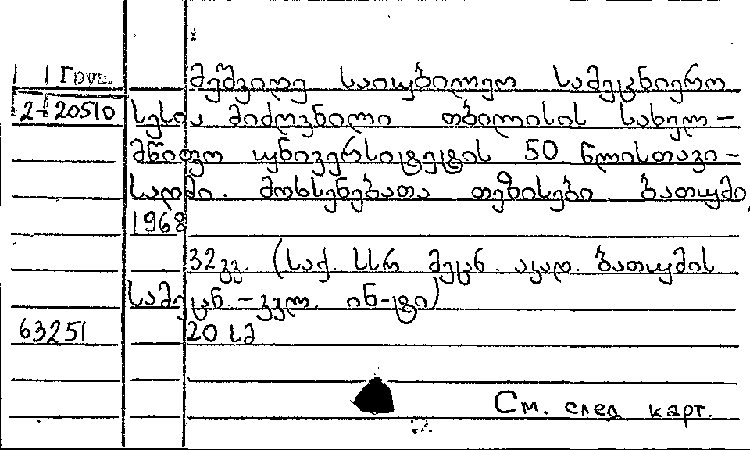 Груз. მეშვიდე საიუბილეო სამეცნიერო
2-20510 სესია მიძღვნილი თბილისის სახელ-
მწიფო უნივერსიტეტის 50 წლისთავი-
სადმი. მოხსენებათა თეზისები ბათუმი,
1968
32გვ. (საქ. სსრ მეცნ. აკად. ბათუმის
სამეცნ.-კვლ. ინ-ტი)
63251 20 სმ
См. след карт.